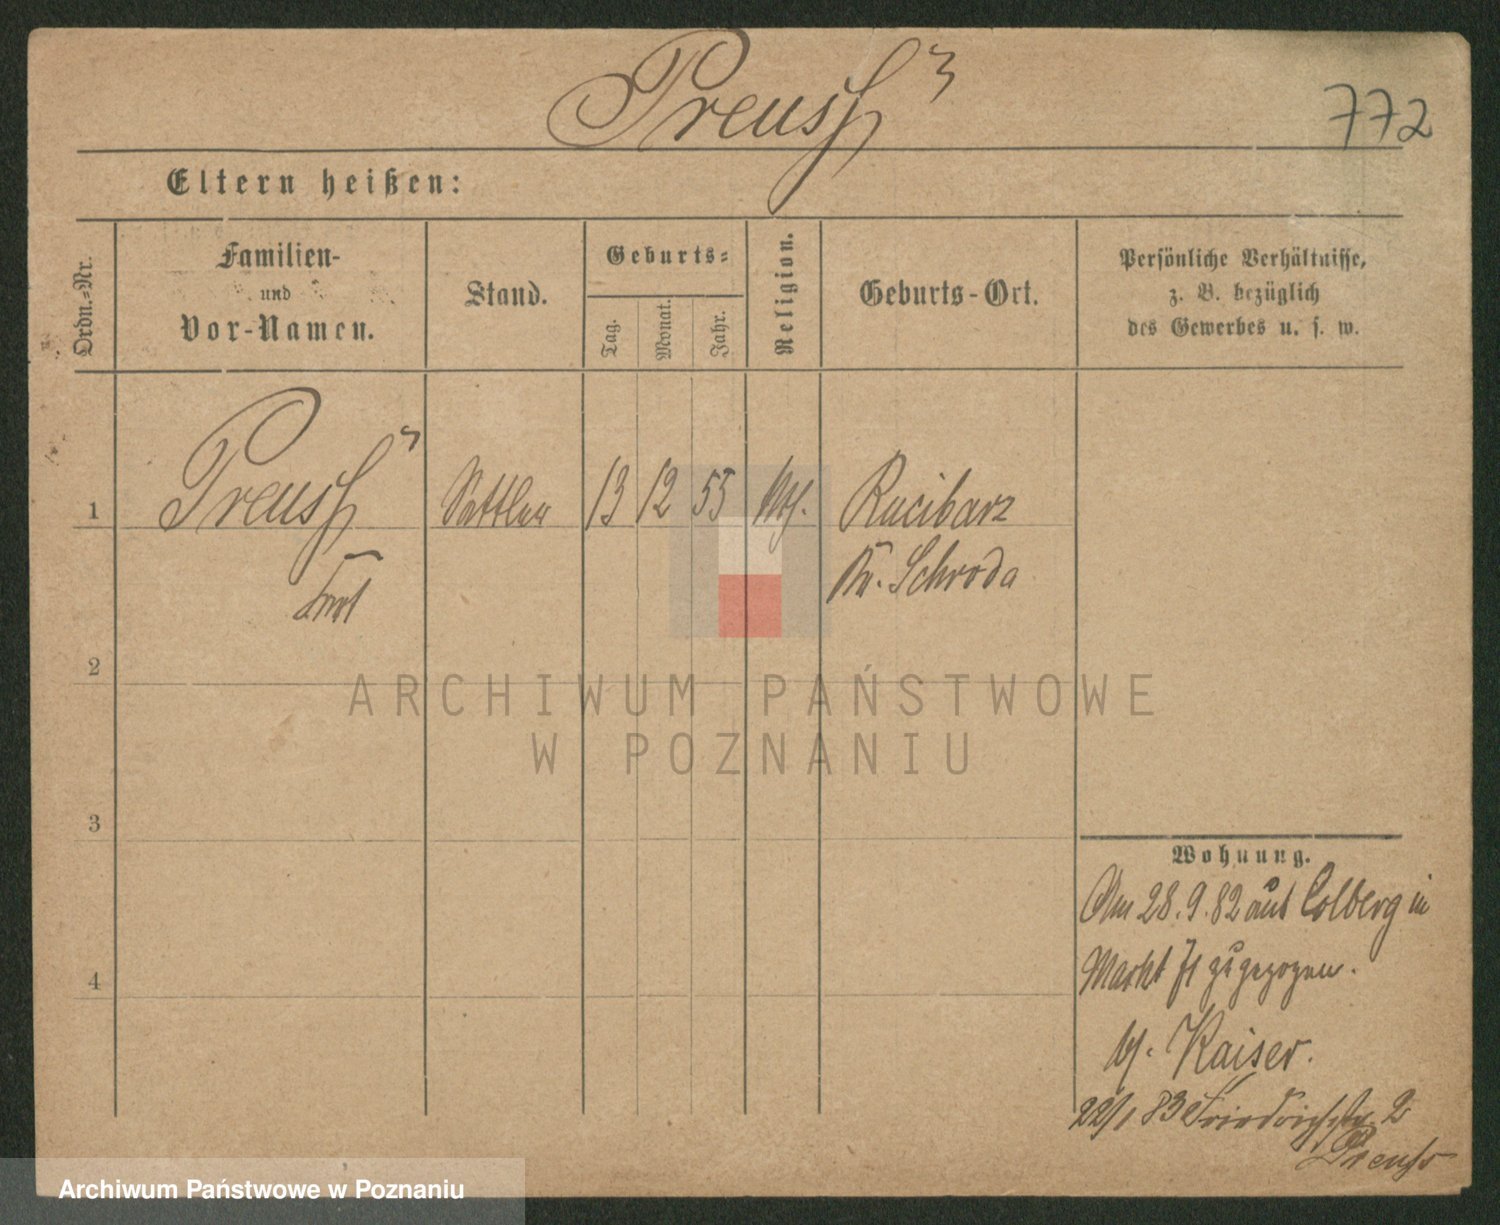 Preuß
772
Eltern heißen:
Ordn.-Nr.
Familien-
und
Vor-Namen.
Stand.
Geburts-
Tag.
Monat.
Jahr.
Religion.
Geburts-Ort.
Persönliche Verhältnisse,
z. B. bezüglich
des Gewerbes u. s. w.
1
Preuß
Sattler
13
12
55
Racibarz
Kr. Schroda
2
3
4
Wohnung.
Am 28.9.82 aus Colberg in
Markt 71 zugezogen.
bj. Kaiser.
22/1 83 Friedrichstr 2
Preuß
ARCHIWUM PAŃSTWOWE
W POZNANIU
Archiwum Państwowe w Poznaniu